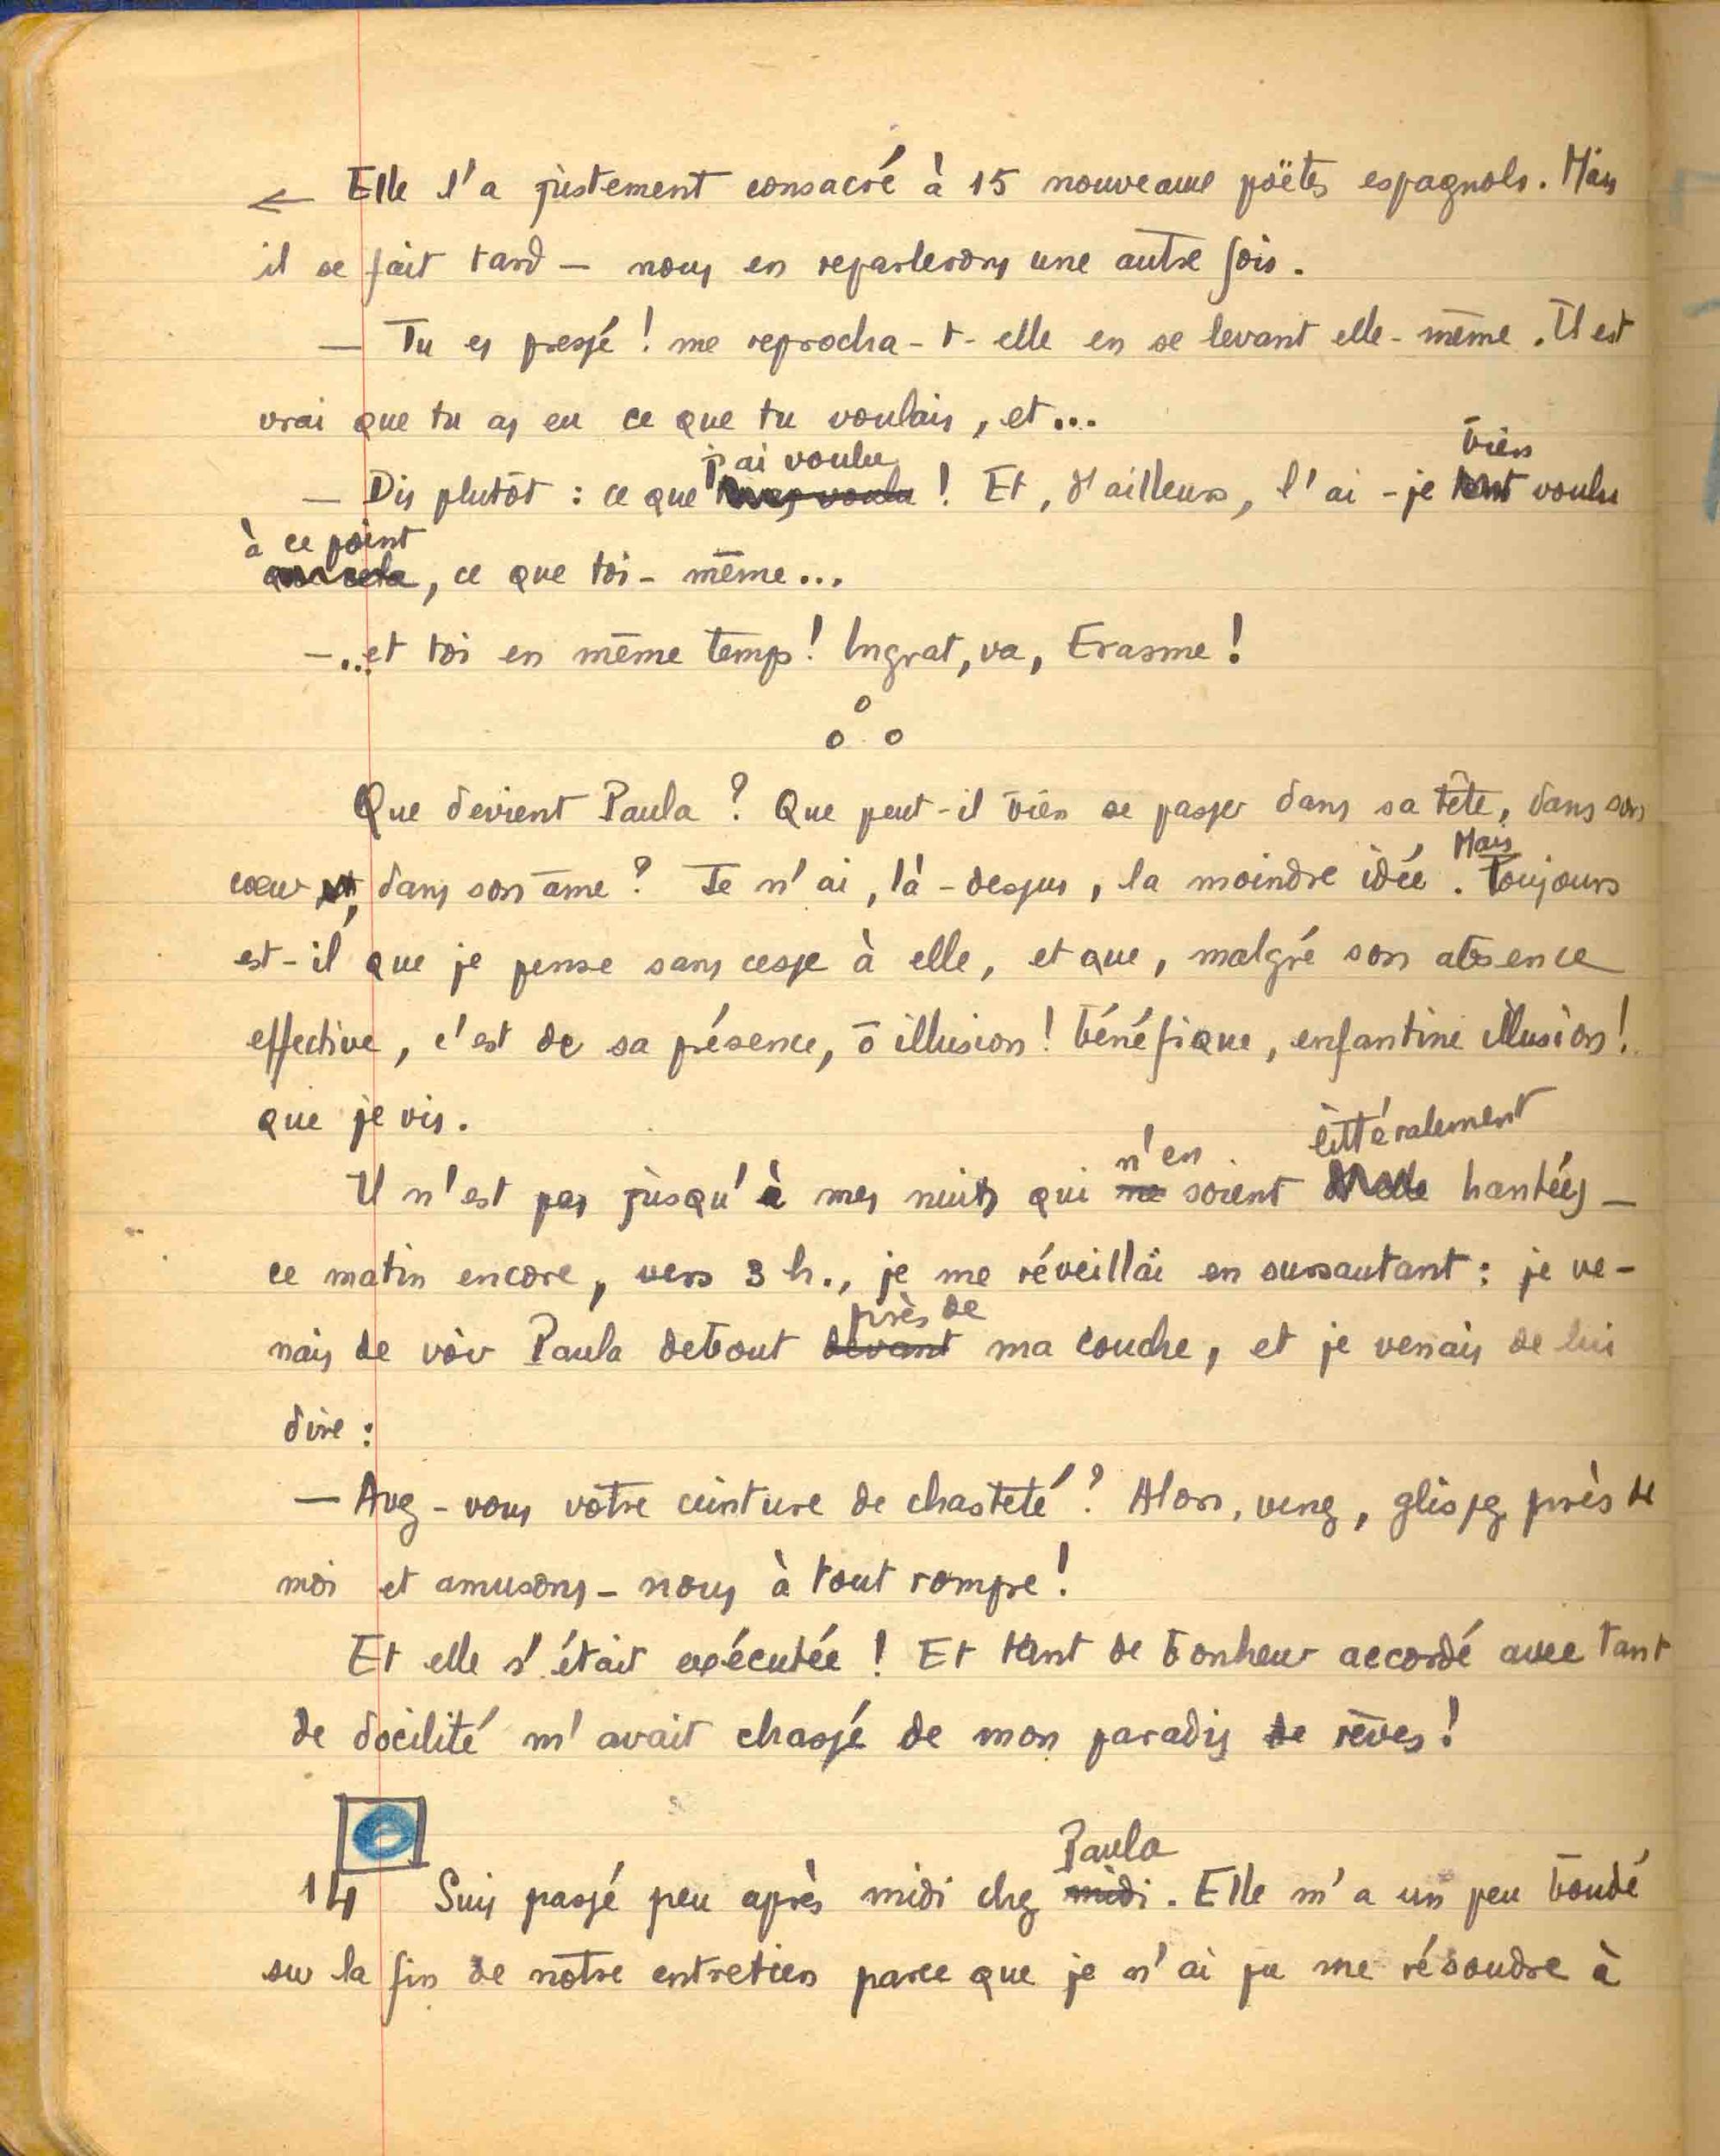 ← Elle l'a justement consacré à 15 nouveaux poëtes espagnols. Mais
il se fait tard — nous en reparlerons une autre fois.
— Tu es pressé ! me reprocha-t-elle en se levant elle-même. Il est
vrai que tu as eu ce que tu voulais, et...
j'ai voulu bien
— Dis plutôt : ce que tu as voulu ! Et, d'ailleurs, l'ai-je tant voulu
à ce point
que cela, ce que toi-même...
—...et toi en même temps ! Ingrat, va, Erasme !
o
o o
Que devient Paula ? Que peut-il bien se passer dans sa tête, dans son
Mais
cœur et, dans son âme ? Je n'ai, là-dessus, la moindre idée. Toujours
est-il que je pense sans cesse à elle, et que, malgré son absence
effective, c'est de sa présence, ô illusion ! bénéfique, enfantine illusion !
que je vis.
n'en littéralement
Il n'est pas jusqu'à mes nuits qui ne soient hantées —
ce matin encore, vers 3 h., je me réveillai en sursautant : je ve-
près de
nais de voir Paula debout devant ma couche, et je venais de lui
dire :
— Avez-vous votre ceinture de chasteté ? Alors, venez, glissez près de
moi et amusons-nous à tout rompre !
Et elle s'était exécutée ! Et tant de bonheur accordé avec tant
de docilité m'avait chassé de mon paradis de rêves !
Paula
14 Suis passé peu après midi chez midi. Elle m'a un peu boudé
sur la fin de notre entretien parce que je n'ai pu me résoudre à